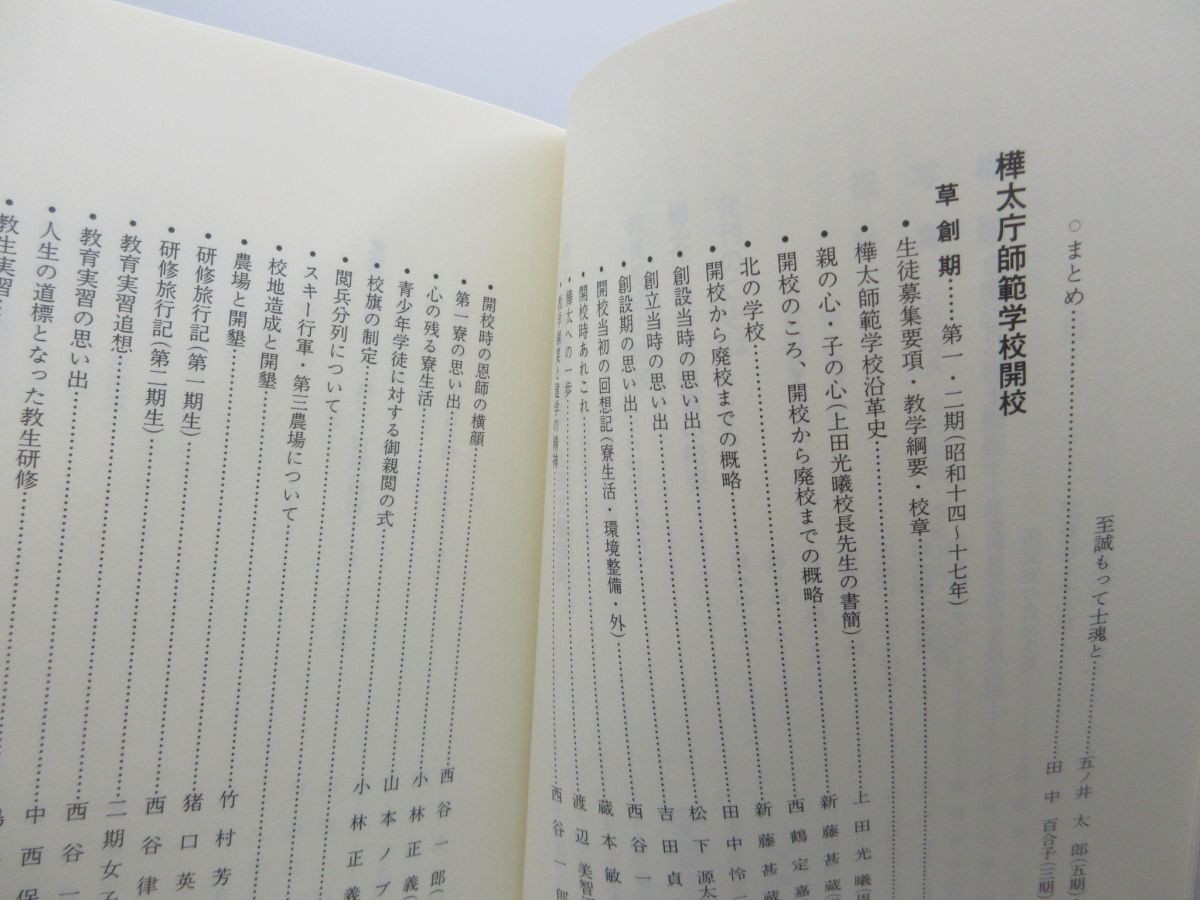 至誠もって士魂と……五ノ井 太 郎(五期)
○まとめ……田 中 百合子(三期)
樺太庁師範学校開校
草 創 期……第一・二期(昭和十四～十七年)
・生徒募集要項・教学綱要・校章……
・樺太師範学校沿革史……
・親の心・子の心(上田光曦校長先生の書簡)……上 田 光 曦
・開校のころ、開校から廃校までの概略……新 藤 甚 蔵
・北の学校……西 鶴 定 嘉
・開校から廃校までの概略……新 藤 甚 蔵
・創設当時の思い出……田 中 怜 一
・創立当時の思い出……松 下 源 太
・創設期の思い出……吉 田 貞
・開校当初の回想記(寮生活・環境整備・外)……西 谷 一
・開校時あれこれ……蔵 本 敏
・樺太への一歩……渡 辺 美智
・教学綱要と建学の精神……西 谷 一 郎
・開校時の恩師の横顔……西 谷 一 郎
・第一寮の思い出……小 林 正 義
・心の残る寮生活……山 本 ノ ブ
・青少年学徒に対する御親閲の式……小 林 正 義
・校旗の制定……
・閲兵分列について……
・スキー行軍・第三農場について……
・校地造成と開墾……竹 村 芳
・農場と開墾……猪 口 英
・研修旅行記(第一期生)……西 谷 律
・研修旅行記(第二期生)……二 期 女 子
・教育実習追想……西 谷 一
・教育実習の思い出……中 西 保
・人生の道標となった教生研修
・教生実習